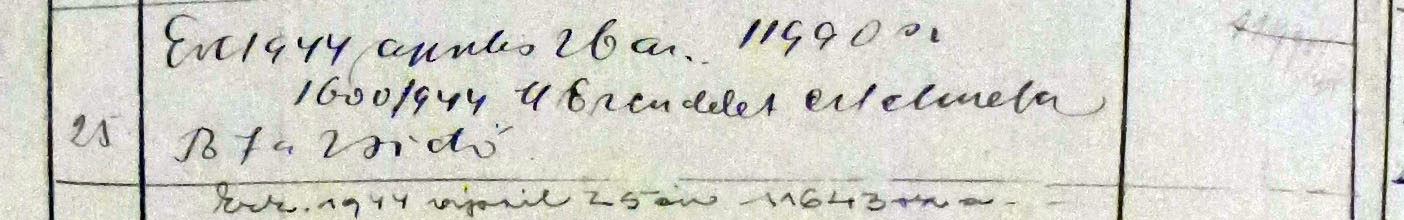 Érk 1944 április 26 án. 11990 sz
1600/1944 M E rendelet értelmében
25 B f a zsidó
Érk. 1944 április 25 én 11643 sz a.